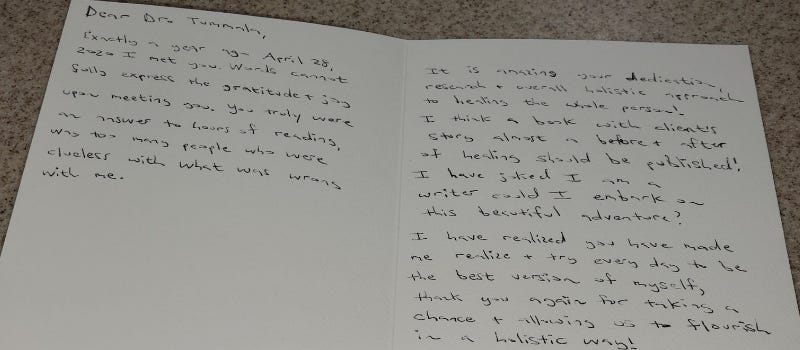 Dear Dr. Tummala,
Exactly a year ago April 28,
2020 I met you. Words cannot
fully express the gratitude + joy
upon meeting you. You truly were
an answer to hours of reading,
way too many people who were
clueless with what was wrong
with me.
It is amazing your dedication,
research + overall holistic approach
to healing the whole person!
I think a book with client's
story almost a before + after
of healing should be published!
I have joked I am a
writer could I embark on
this beautiful adventure?
I have realized you have made
me realize + try every day to be
the best version of myself,
thank you again for taking a
chance + allowing us to flourish
in a holistic way!